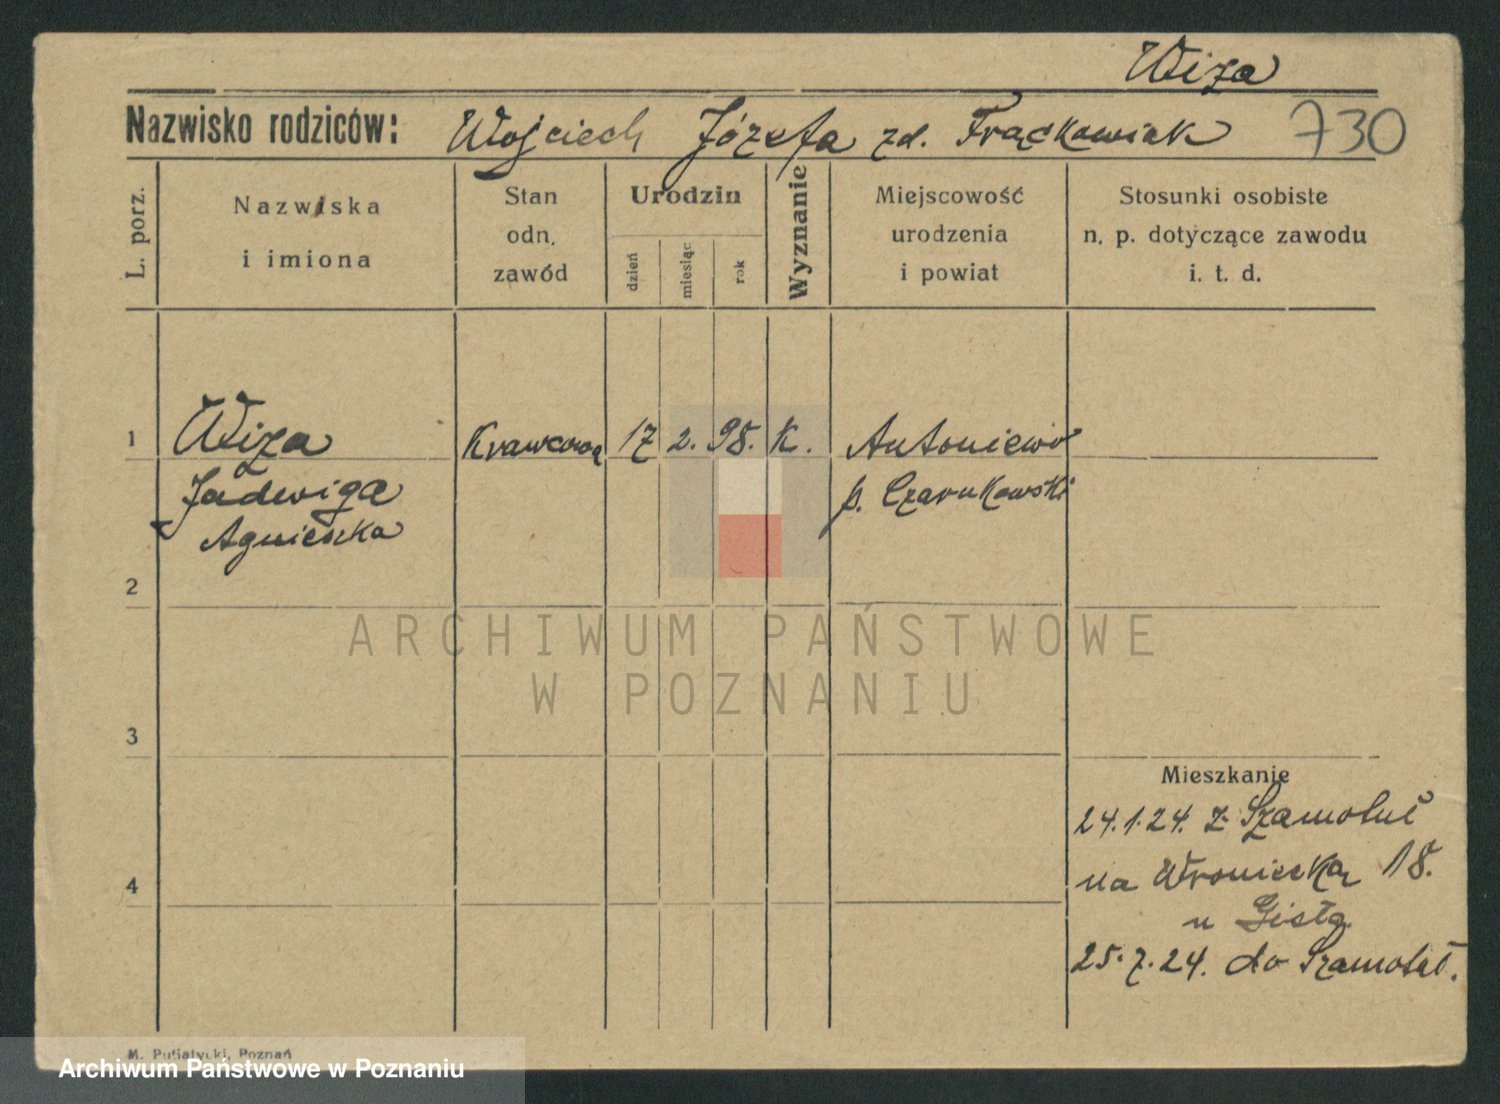 Wiza
Nazwisko rodziców: Wojciech Józefa zd. Frąckowiak 730
L. porz.
Nazwiska
i imiona
Stan
odn.
zawód
Urodzin
dzień
miesiąc
rok
Wyznanie
Miejscowość
urodzenia
i powiat
Stosunki osobiste
n. p. dotyczące zawodu
i. t. d.
1 Wiza Krawcowa 17 2. 98. K. Antoniewo
Jadwiga p. Czarnkowski
Agnieszka
2
ARCHIWUM PAŃSTWOWE
W POZNANIU
3
Mieszkanie
24.1.24. z Szamotuł
na Wroniecką 18.
u
4
25.7.24. do Szamotuł.
M. Putiatycki, Poznań
Archiwum Państwowe w Poznaniu